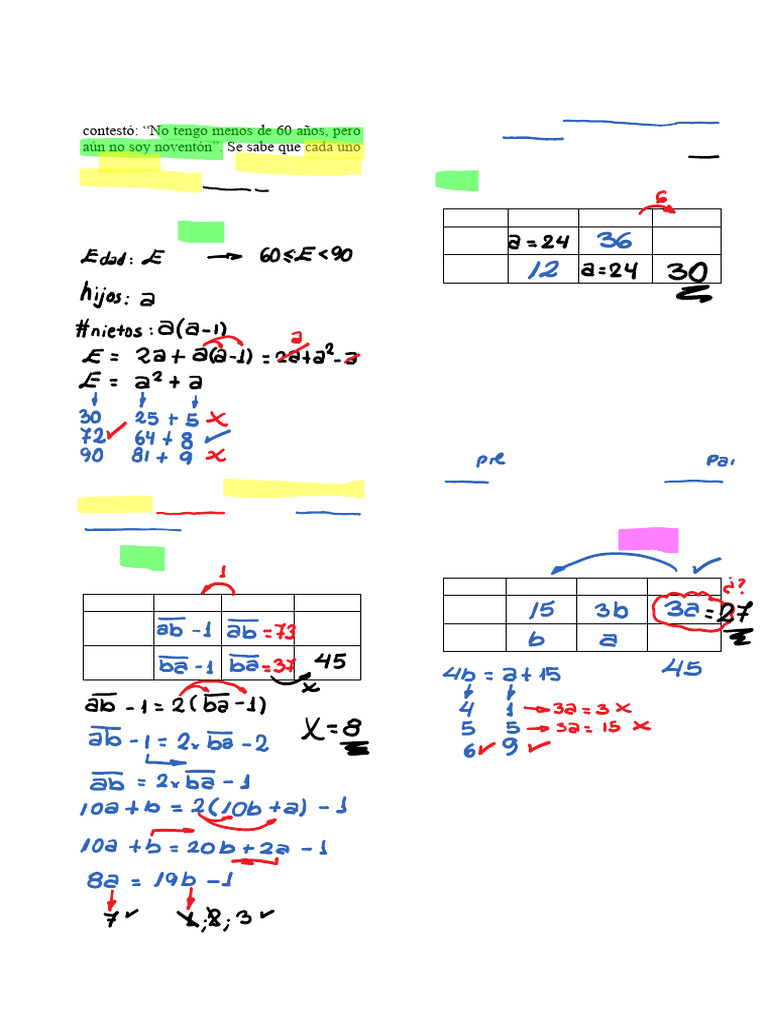 contestó: “No tengo menos de 60 años, pero
aún no soy noventón”. Se sabe que cada uno
Edad: E → 60≤E<90
hijos: a
#nietos: a(a-1)
a
E = 2a + a(a-1) = 2a+a²-a
E = a² + a
30 25 + 5 x
72 ✓ 64 + 8 ✓
90 81 + 9 x
1
ab̅ - 1 ab̅ = 73
ba̅ - 1 ba̅ = 37 45
x
ab̅ - 1 = 2(ba̅ - 1)
X = 8
ab̅ - 1 = 2x ba̅ - 2
ab̅ = 2x ba̅ - 1
10a + b = 2(10b + a) - 1
10a + b = 20b + 2a - 1
8a = 19b - 1
7 ✓ 1; 2; 3 ✓
6
a = 24 36
12 a = 24 30
pre pai
✓
¿?
15 3b 3a = 27
b a
4b = a + 15 45
4 1 → 3a = 3 x
5 5 → 3a = 15 x
6 ✓ 9 ✓